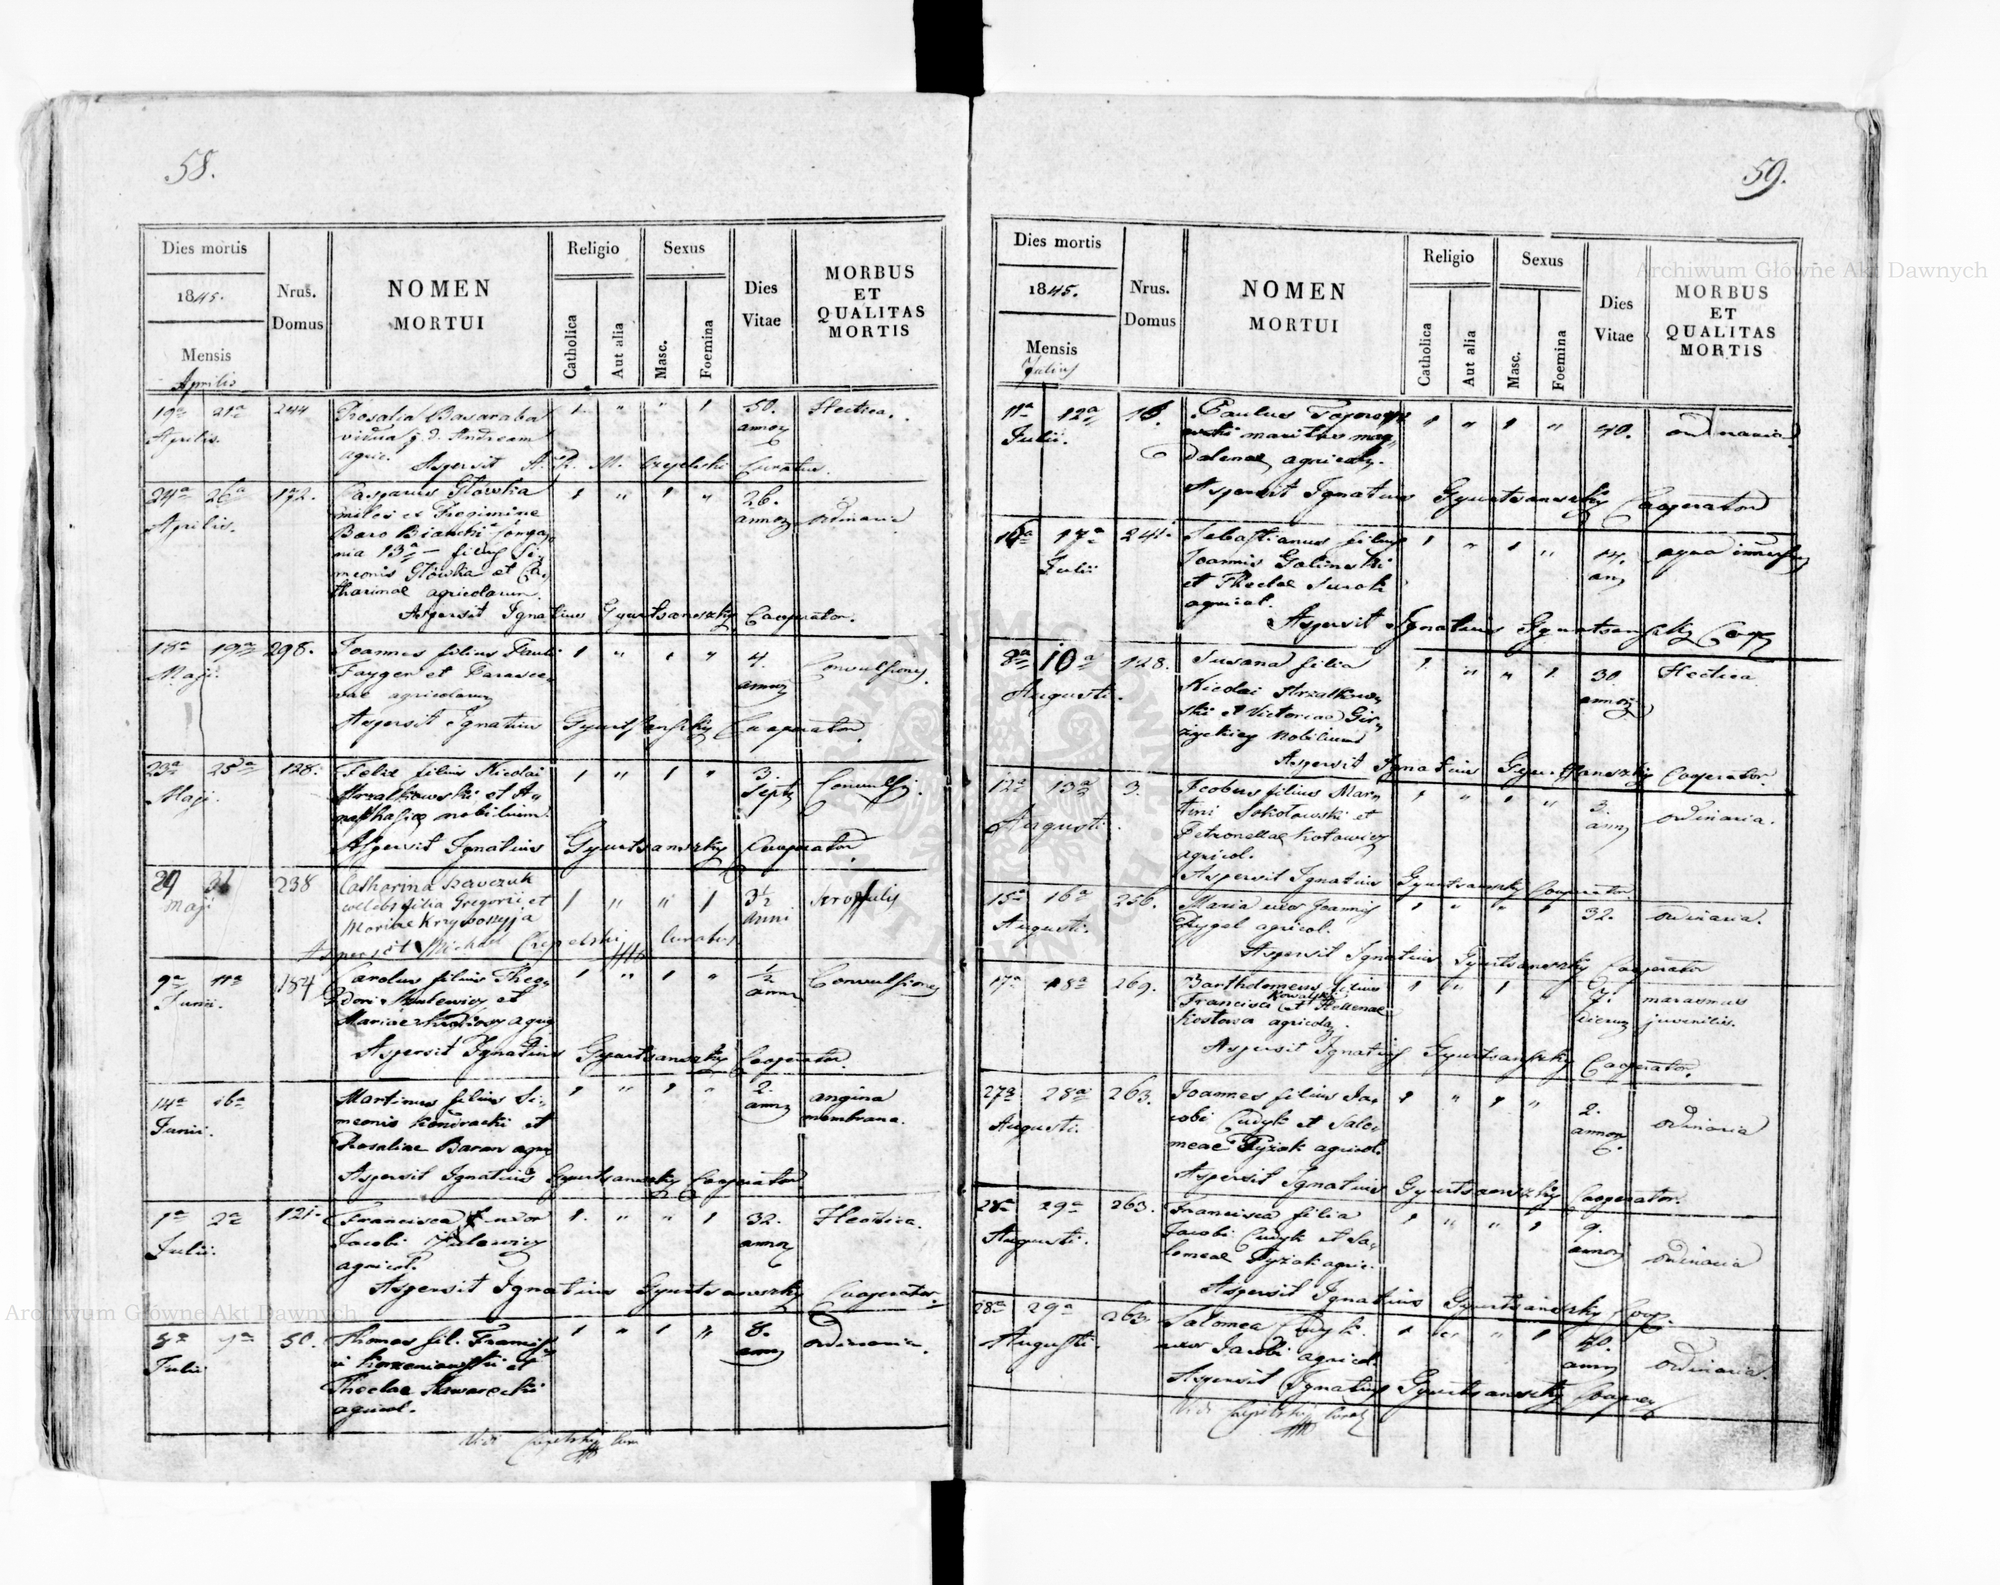 58.
Dies mortis
1845.
Mensis
Aprilis
Nrus.
Domus
NOMEN
MORTUI
Religio
Catholica
Aut alia
Sexus
Masc.
Foemina
Dies
Vitae
MORBUS
ET
QUALITAS
MORTIS
19a 21a 244 Rosalia Basaraba 1 " " 1 50. Hectica.
Aprilis. vidua p. d. Andream annor
agric.
Aspersit A. R. M. Curatus.
24a 26a 172. Casparus Głowka 1 " 1 " 26.
Aprilis. miles ex Regimine annor ordinaria
Baro Bianchi
nia 13a filius Si-
meonis Głowka et Ca-
tharinae agricolarum.
Aspersit Ignatius Gyurtsanszky Cooperator.
18a 19a 298. Joannes filius Pauli 1 " 1 " 4. Convulsiones.
Maji. Fayger et Parasce- annor
vae agricolarum
Aspersit Ignatius Gyurtsanszky Cooperator
23a 25a 128. Felix filius Nicolai 1 " 1 " 3. Convulsi.
Maji. Strzałkowski et A- Sept
nasthasiae nobilium.
Aspersit Ignatius Gyurtsanszky Cooperator
29 31 238 Catharina Krawczuk 1 " " 1 3½ scrofulis
Maji filia Gregorii et anni
Mariae
Aspersit Michael Curatus
9a 11a 184 Carolus filius Theo- 1 " 1 " ½ Convulsiones
Junii. dori et anni
Mariae agric
Aspersit Ignatius Gyurtsanszky Cooperator.
14a 16a Martinus filius Si- 1 " 1 " 2. angina
Junii. meonis Kondracki et annor membrana.
Rosaliae Baran agric
Aspersit Ignatius Gyurtsanszky Cooperator
1a 2a 121. Francisca uxor 1. " " 1 32. Hectica.
Julii. Jacobi annor
agricol.
Aspersit Ignatius Gyurtsanszky Cooperator.
50. Thomas fil. Francis- 1 " 1 " 8. ordinaria.
Julii ci Korzeniowski et annor
Theclae
agricol.
Vidi
59.
Dies mortis
1845.
Mensis
Julius
Nrus.
Domus
NOMEN
MORTUI
Religio
Catholica
Aut alia
Sexus
Masc.
Foemina
Dies
Vitae
MORBUS
ET
QUALITAS
MORTIS
11a 12a Paulus 1 " 1 " 40. ordinaria
Julii. maritus Mag-
dalenae agricola.
Aspersit Ignatius Gyurtsanszky Cooperator
16a 17a 241. Sebastianus filius 1 " 1 " 14. aqua immersus
Julii Joannis Galinski ann
et Theclae Surok
agricol.
Aspersit Ignatius Gyurtsanszky Coop
8a 10a 128. Susana filia 1. " " 1. 30 Hectica
Augusti. Nicolai Strzałkow- annor
ski et Victoriae Gir-
życkiey Nobilium
Aspersit Ignatius Gyurtsanszky Cooperator.
12a 13a 3. Jacobus filius Mar- 1 " 1 " 3. ordinaria.
Augusti. tini Sokołowski et ann
Petronellae
agricol.
Aspersit Ignatius Gyurtsanszky Cooperator.
15a 16a 256. Maria uxor Joannis 1 " " 1 32. ordinaria.
Augusti. agricol.
Aspersit Ignatius Gyurtsanszky Cooperator
17a 18a 269. Bartholomeus filius 1 " 1 " 7. marasmus
Francisci Kowalski et Hellenae dierum juvenilis.
Kostowa agricola.
Aspersit Ignatius Gyurtsanszky Cooperator.
27a 28a 263. Joannes filius Ja- 1 " 1 " 2. ordinaria
Augusti. cobi Cudyk et Salo- annor
meae Pyżok agricol.
Aspersit Ignatius Gyurtsanszky Cooperator.
28a 29a 263. Francisca filia 1 " " 1 9. ordinaria
Augusti. Jacobi Cudyk et Sa- annor
lomeae Pyżok agric.
Aspersit Ignatius Gyurtsanszky Coop.
28a 29a 263. Salomea Cudyk 1 " " 1 40. ordinaria.
Augusti. uxor Jacobi agricol. annor
Aspersit Ignatius Gyurtsanszky
Vidi
Archiwum Główne Akt Dawnych
Archiwum Główne Akt Dawnych